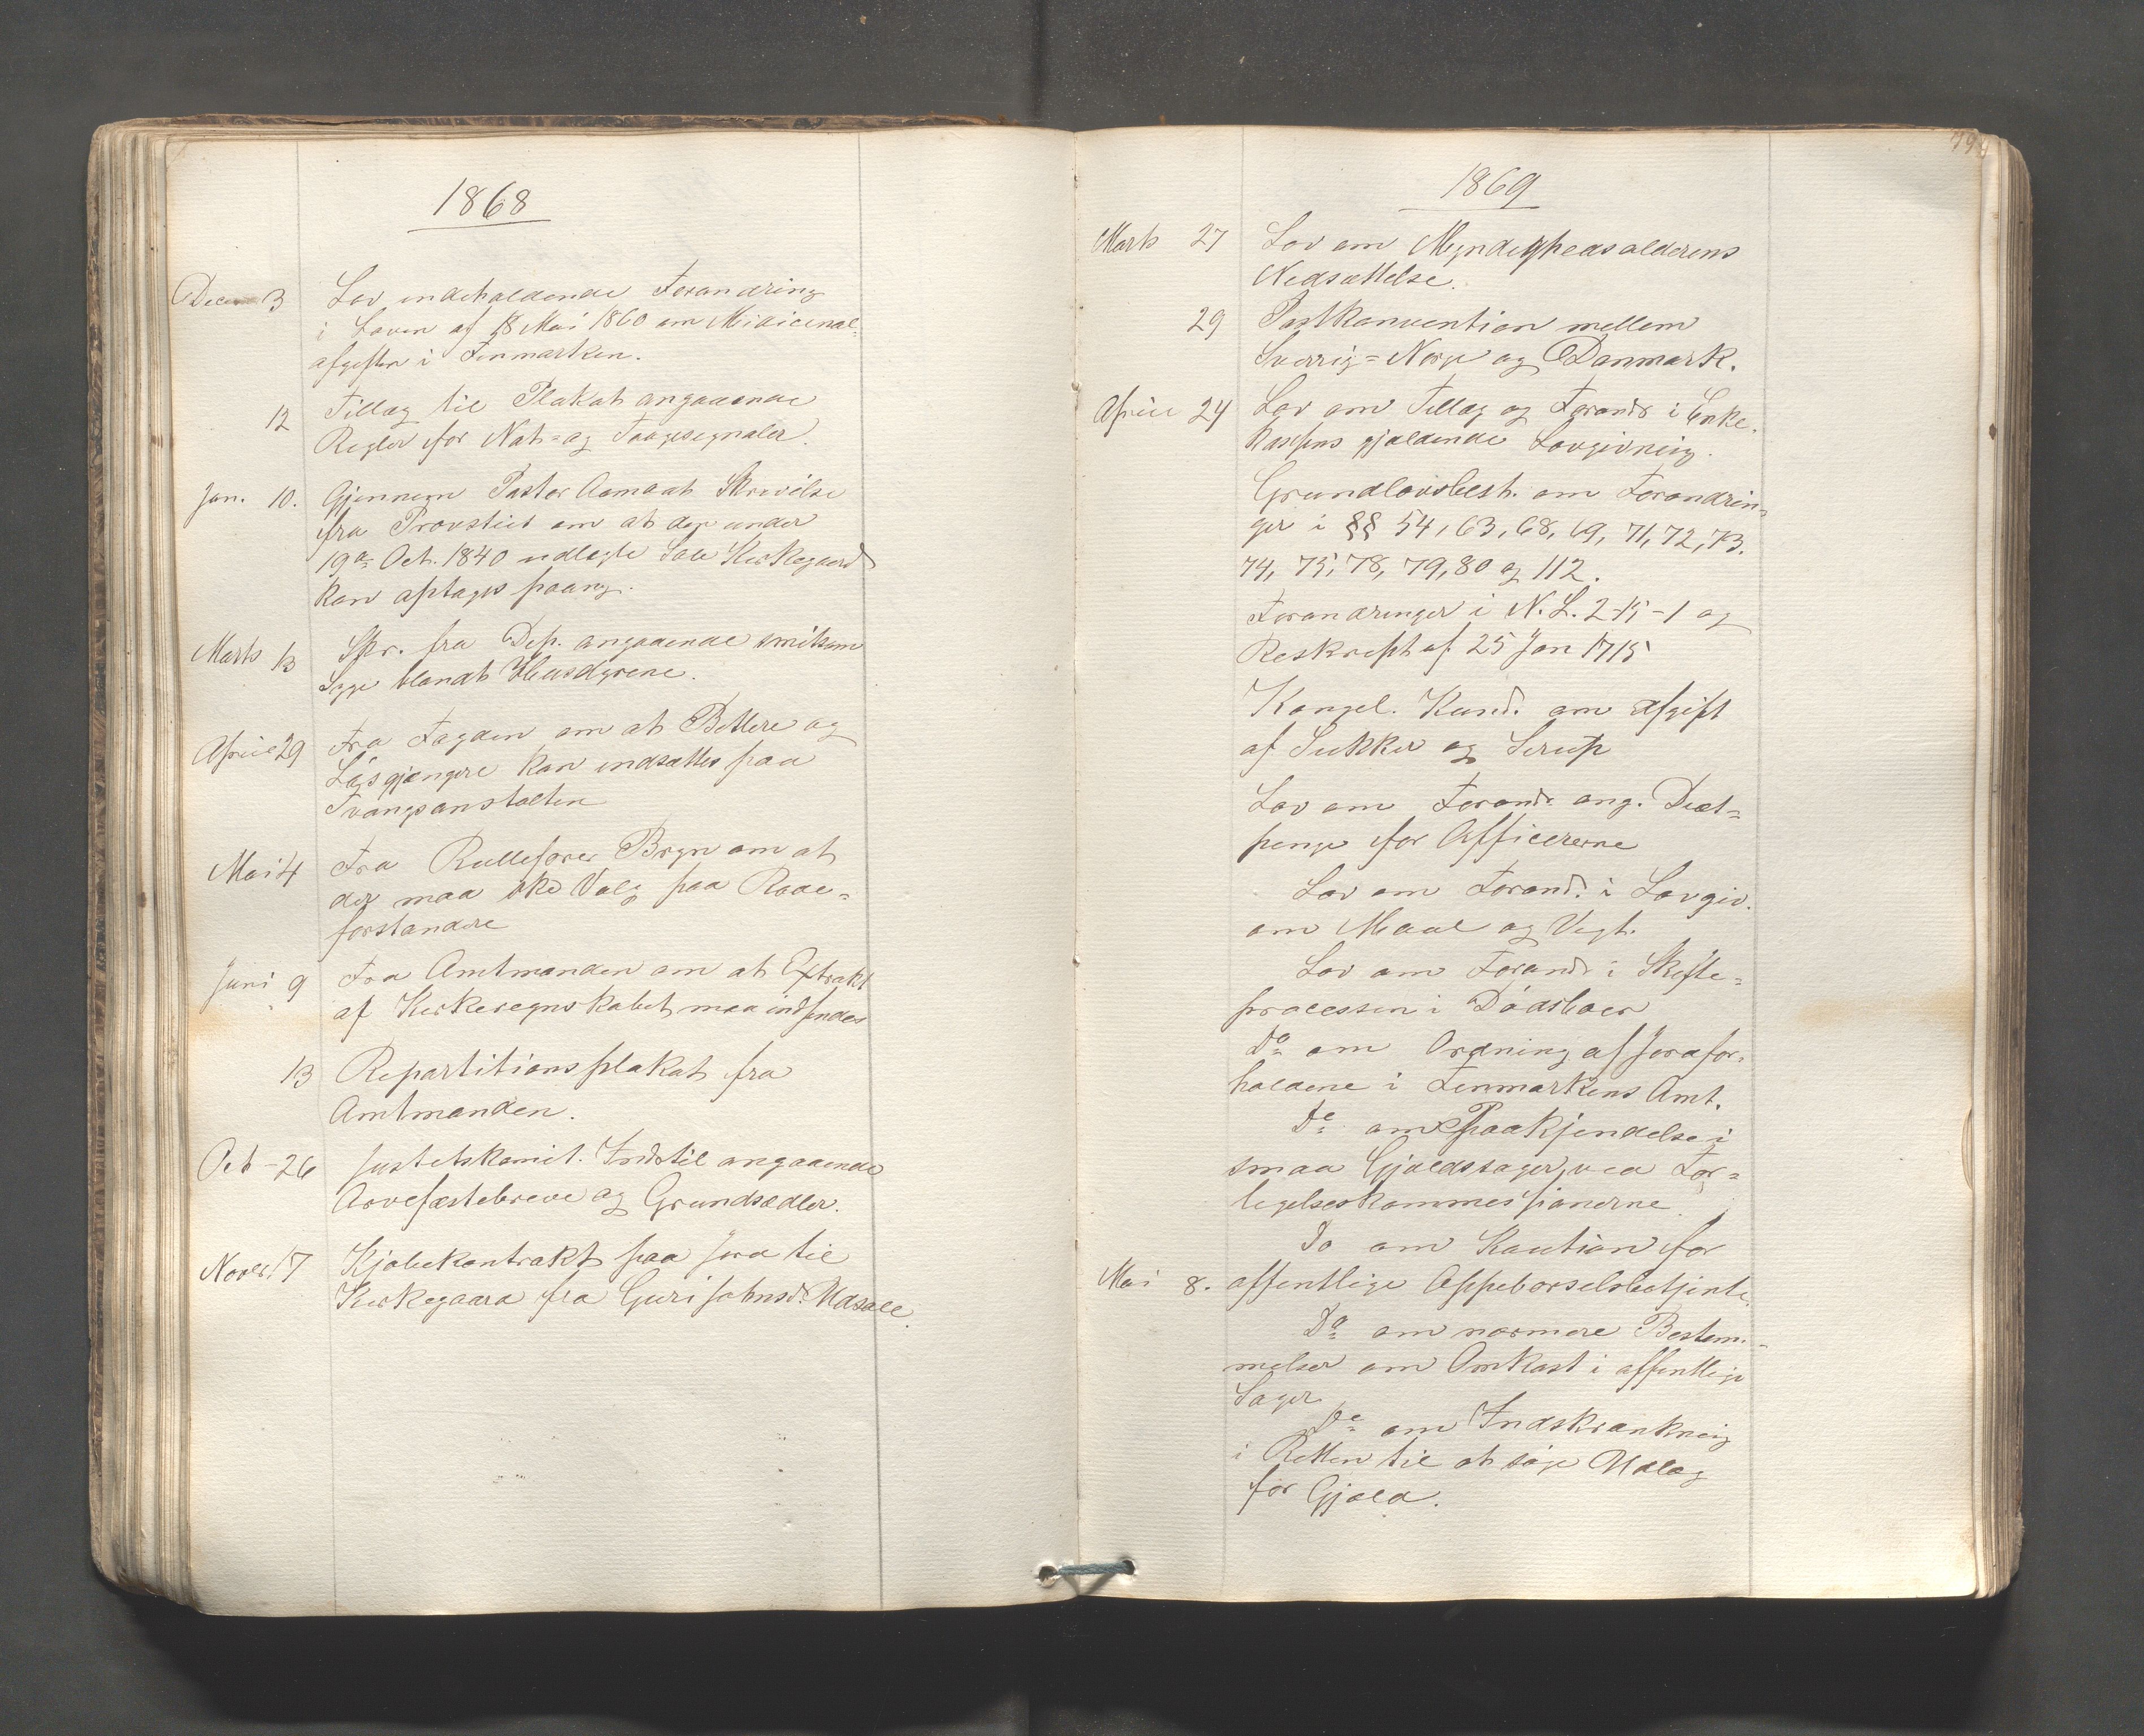 1868
Decem 3 Lov indeholdende Forandring
i Loven af 18 Mai 1860 om Medicinal-
afgiften i Finmarken.
12 Tillæg til Plakat angaaende
Regler for Nat- og Taagesignaler.
Jan. 10. Gjennem Pastor Aamodt Skrivelse
fra Provstiet om at den under
19de Oct. 1840 udlagte Kirkegaard
kan optages paany.
Marts 13 Skr. fra Dep. angaaende smitsom
Syge blandt Husdyrene.
April 29 Fra Fogden om at Betlere og
Løsgjængere kan indsættes paa
Tvangsanstalten
Mai 4 Fra Rullefører Bryn om at
der maa ske Valg paa Rode-
forstandere
Juni 9 Fra Amtmanden om at Extrakt
af Kirkeregnskabet maa indsendes
13 Repartitionsplakat fra
Amtmanden.
Oct - 26 Justitskomit. Indstil angaaende
Arvefæstebreve og Grundsedler.
Novbr. 17 Kjøbekontrakt paa Jord til
Kirkegaard fra Guri Johnsd.
1869
79
Marts 27 Lov om Myndighedsalderens
Nedsættelse.
29 Postkonvention mellem
Sverrig=Norge og Danmark.
April 24 Lov om Tillæg og Forandr i Enke-
kassens gjældende Lovgivning.
Grundlovsbest. om Forandrin-
ger i §§ 54, 63, 68, 69, 71, 72, 73.
74, 75, 78, 79, 80 og 112.
Forandringer i N. L. 2-15-1 og
Reskript af 25 Jan 1715
Kongel. Kund. om Afgift
af Sukker og Sirup
Lov om Forandr. ang. Diæt-
penge for Officererne
Lov om Forand. i Lovgiv.
om Maal og Vegt.
Lov om Forandr i Skifte-
processen i Dødsboer
Do om Ordning af Jordfor-
holdene i Finmarkens Amt.
Do om Paakjendelse i
smaa Gjældssager ved For-
ligelseskommissionerne.
Do om Kaution for
Mai 8. offentlige Oppebørselsbetjente.
Do om nærmere Bestem-
melser om Omkost i offentlige
Sager
Do om Indskrænkning
i Retten til at søge Udlæg
for Gjæld.